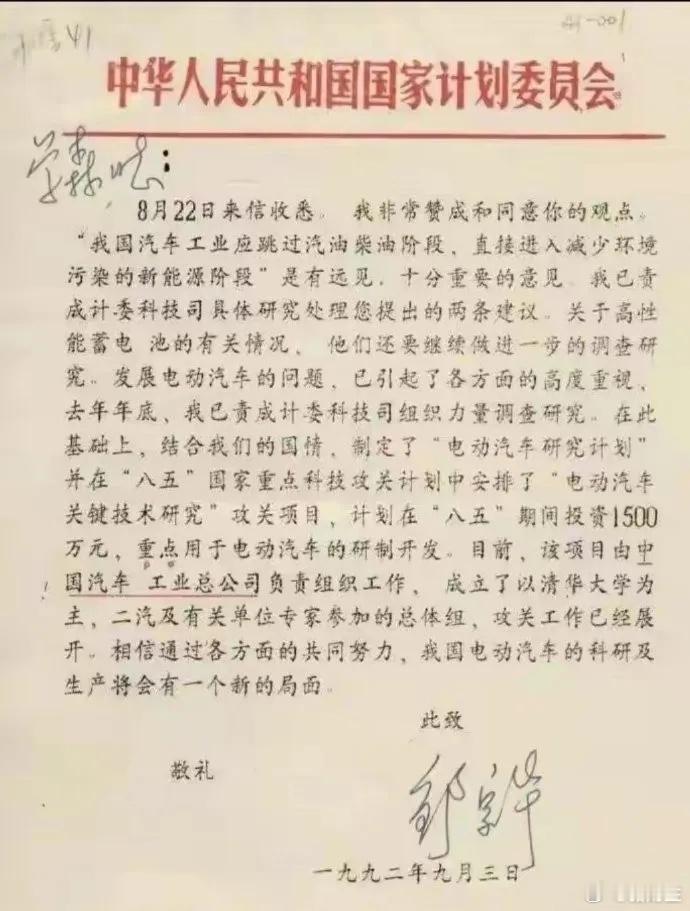 41
41-001
中华人民共和国国家计划委员会
学森同志：
8月22日来信收悉。我非常赞成和同意你的观点。
“我国汽车工业应跳过汽油柴油阶段，直接进入减少环境
污染的新能源阶段”是有远见、十分重要的意见。我已责
成计委科技司具体研究处理您提出的两条建议。关于高性
能蓄电 池的有关情况， 他们还要继续做进一步的调查研
究。发展电动汽车的问题，已引起了各方面的高度重视，
去年年底、我已责成计委科技司组织力量调查研究。在此
基础上，结合我们的国情，制定了“电动汽车研究计划”
并在“八五”国家重点科技攻关计划中安排了“电动汽车
关键技术研究”攻关项目，计划在“八五”期间投资1500
万元，重点用于电动汽车的研制开发。目前，该项目由中
国汽车 工业总公司负责组织工作， 成立了以清华大学为
主，二汽及有关单位专家参加的总体组，攻关工作已经展
开。相信通过各方面的共同努力，我国电动汽车的科研及
生产将会有一个新的局面。
此致
敬礼
邹家华
一九九二年九月三日